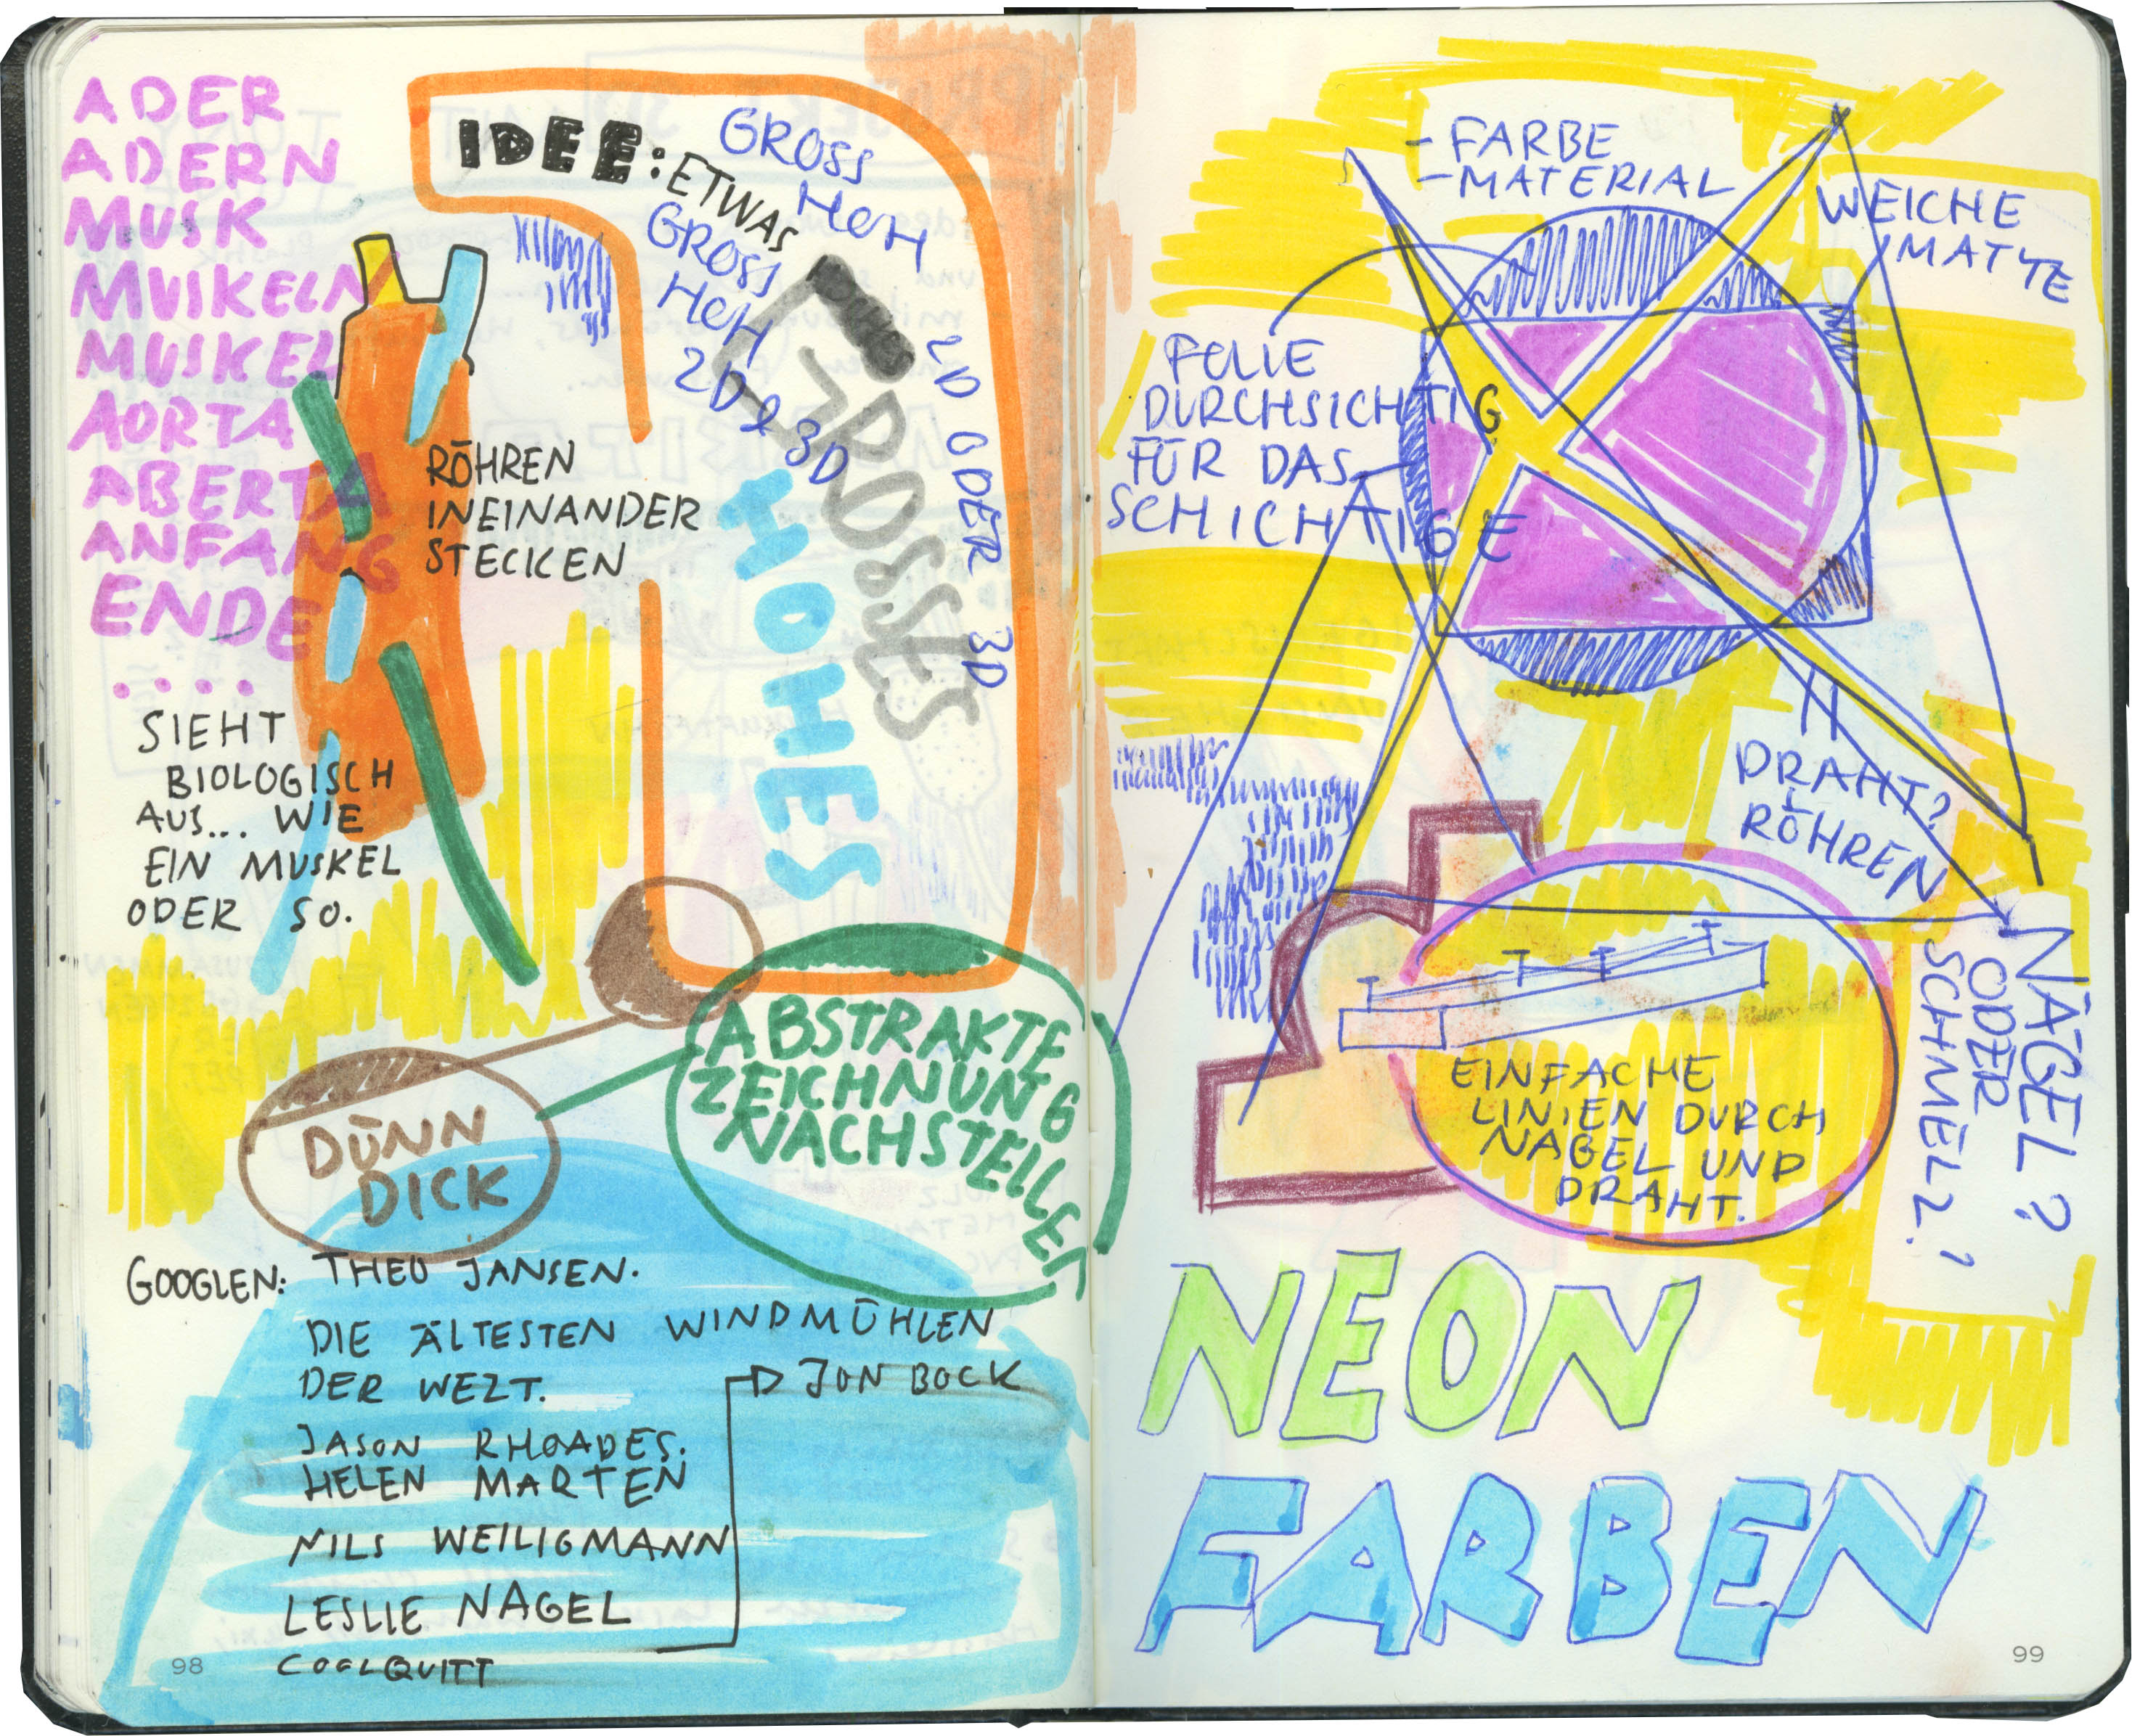 ADER
ADERN
MUSK
MUSKELN
MUSKEL
AORTA
ABERTA
ANFANG
ENDE
....
SIEHT
BIOLOGISCH
AUS... WIE
EIN MUSKEL
ODER SO.
RÖHREN
INEINANDER
STECKEN
IDEE:
ETWAS
GROSS
HOH
GROSS
HOH
2D & 3D
2D ODER 3D
GROSSES
HOHES
DÜNN
DICK
ABSTRAKTE
ZEICHNUNG
NACHSTELLEN
GOOGLEN: THEO JANSEN.
DIE ÄLTESTEN WINDMÜHLEN
DER WELT.
JON BOCK
JASON RHOADES.
HELEN MARTEN
NILS WEILIGMANN
LESLIE NAGEL
COALQUITT
98
- FARBE
- MATERIAL
WEICHE
MATTE
FOLIE
DURCHSICHTIG
FÜR DAS
SCHICHTIGE
DRAHT?
RÖHREN
NÄGEL?
ODER
SCHMELZ?
EINFACHE
LINIEN DURCH
NAGEL UND
DRAHT.
NEON
FARBEN
99